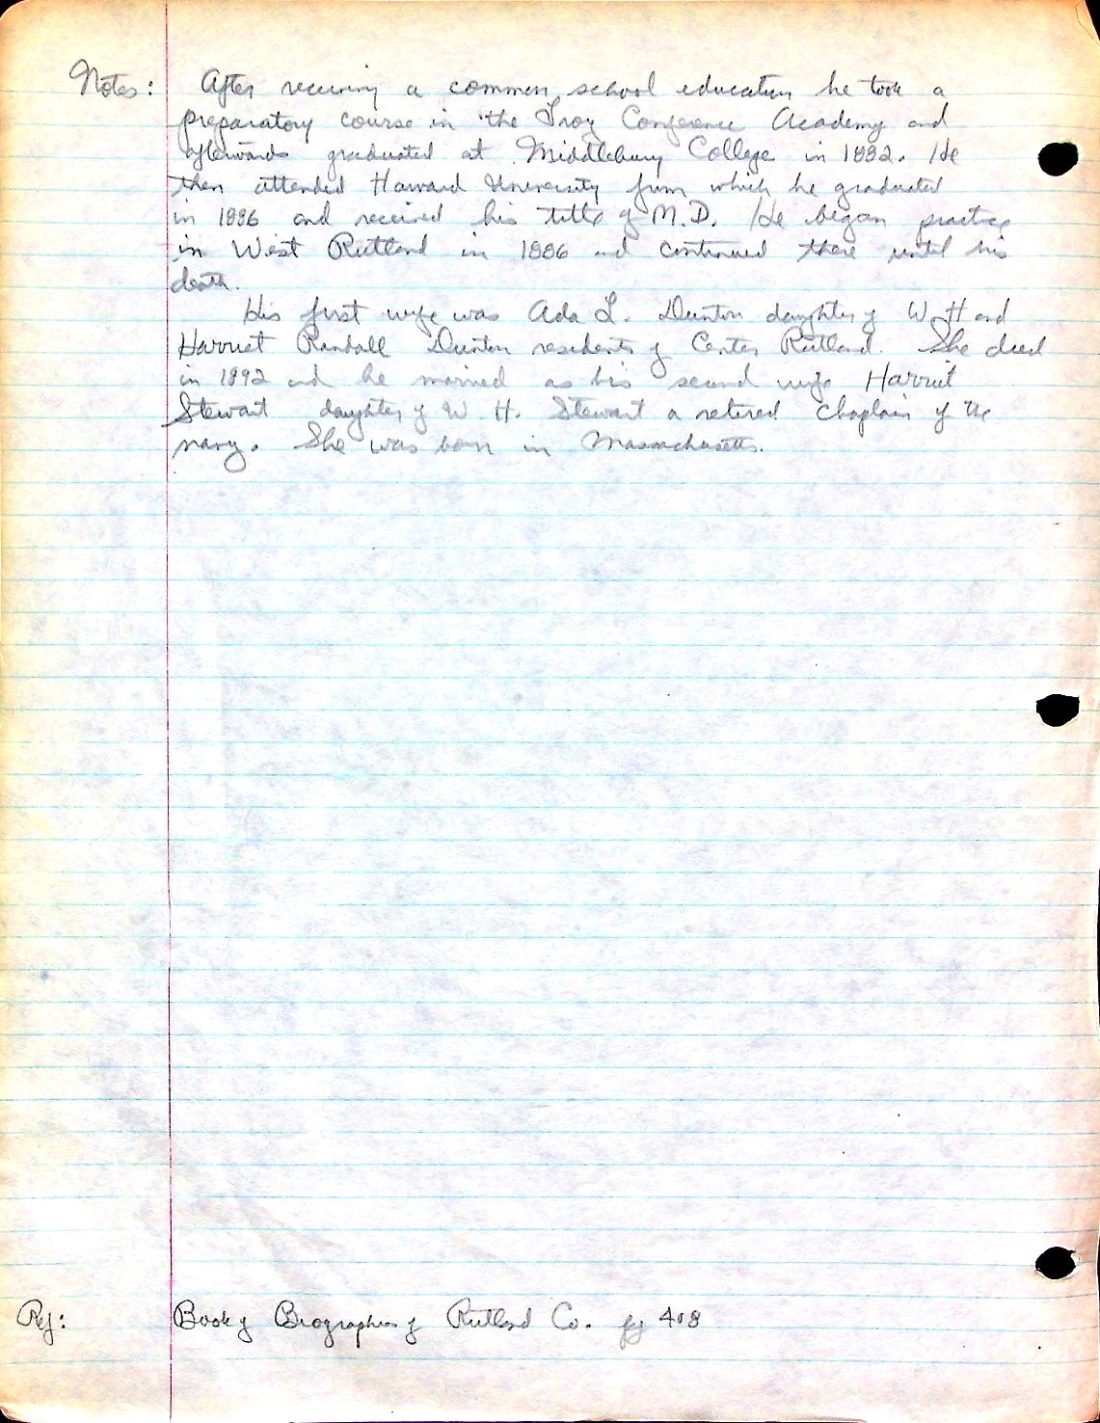 Notes: After receiving a common school education he took a
preparatory course in the Troy Conference Academy and
afterwards graduated at Middlebury College in 1882. He
then attended Harvard University from which he graduated
in 1886 and received his title of M.D. He began practice
in West Rutland in 1886 and continued there until his
death.
His first wife was Ada L. Dunton daughter of W. H and
Harriet Randall Dunton residents of Center Rutland. She died
in 1892 and he married as his second wife Harriet
Stewart daughter of W. H. Stewart a retired Chaplain of the
navy. She was born in Massachusetts.
Ref: Book of Biographies of Rutland Co. pg 408